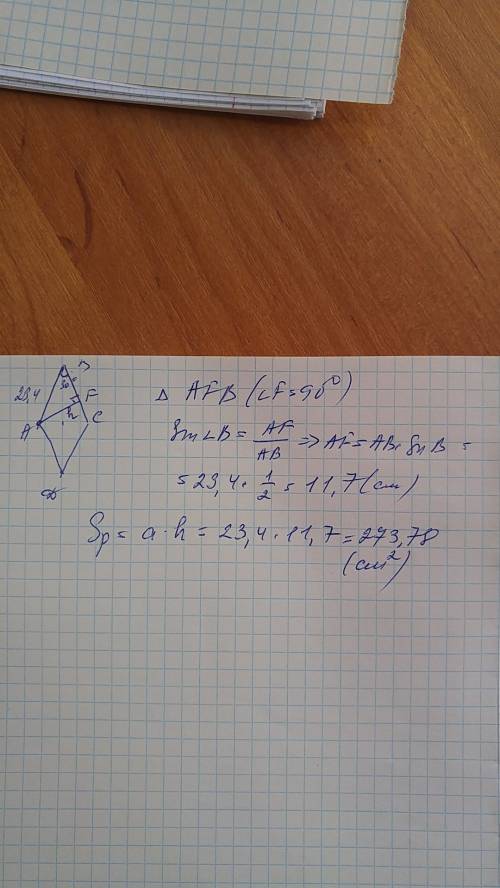 B
30°
23,4
F
h
A
C
D
Δ AFB (∠F=90°)
Sin∠B = AF/AB => AF=AB·Sin B =
= 23,4 · 1/2 = 11,7 (см)
Sр = a·h = 23,4·11,7 = 273,78
(см²)